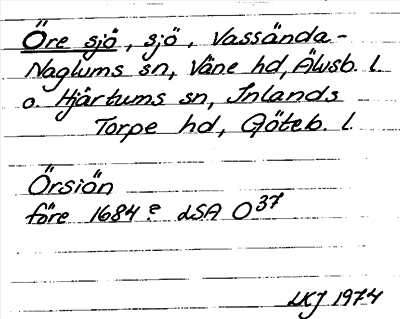 Öre sjö, sjö, Vassända-
Naglums sn, Väne hd, Älvsb. l.
o. Hjärtums sn, Inlands
Torpe hd, Göteb. l.
Örsiön
före 1684? LSA O37
LKJ 1974